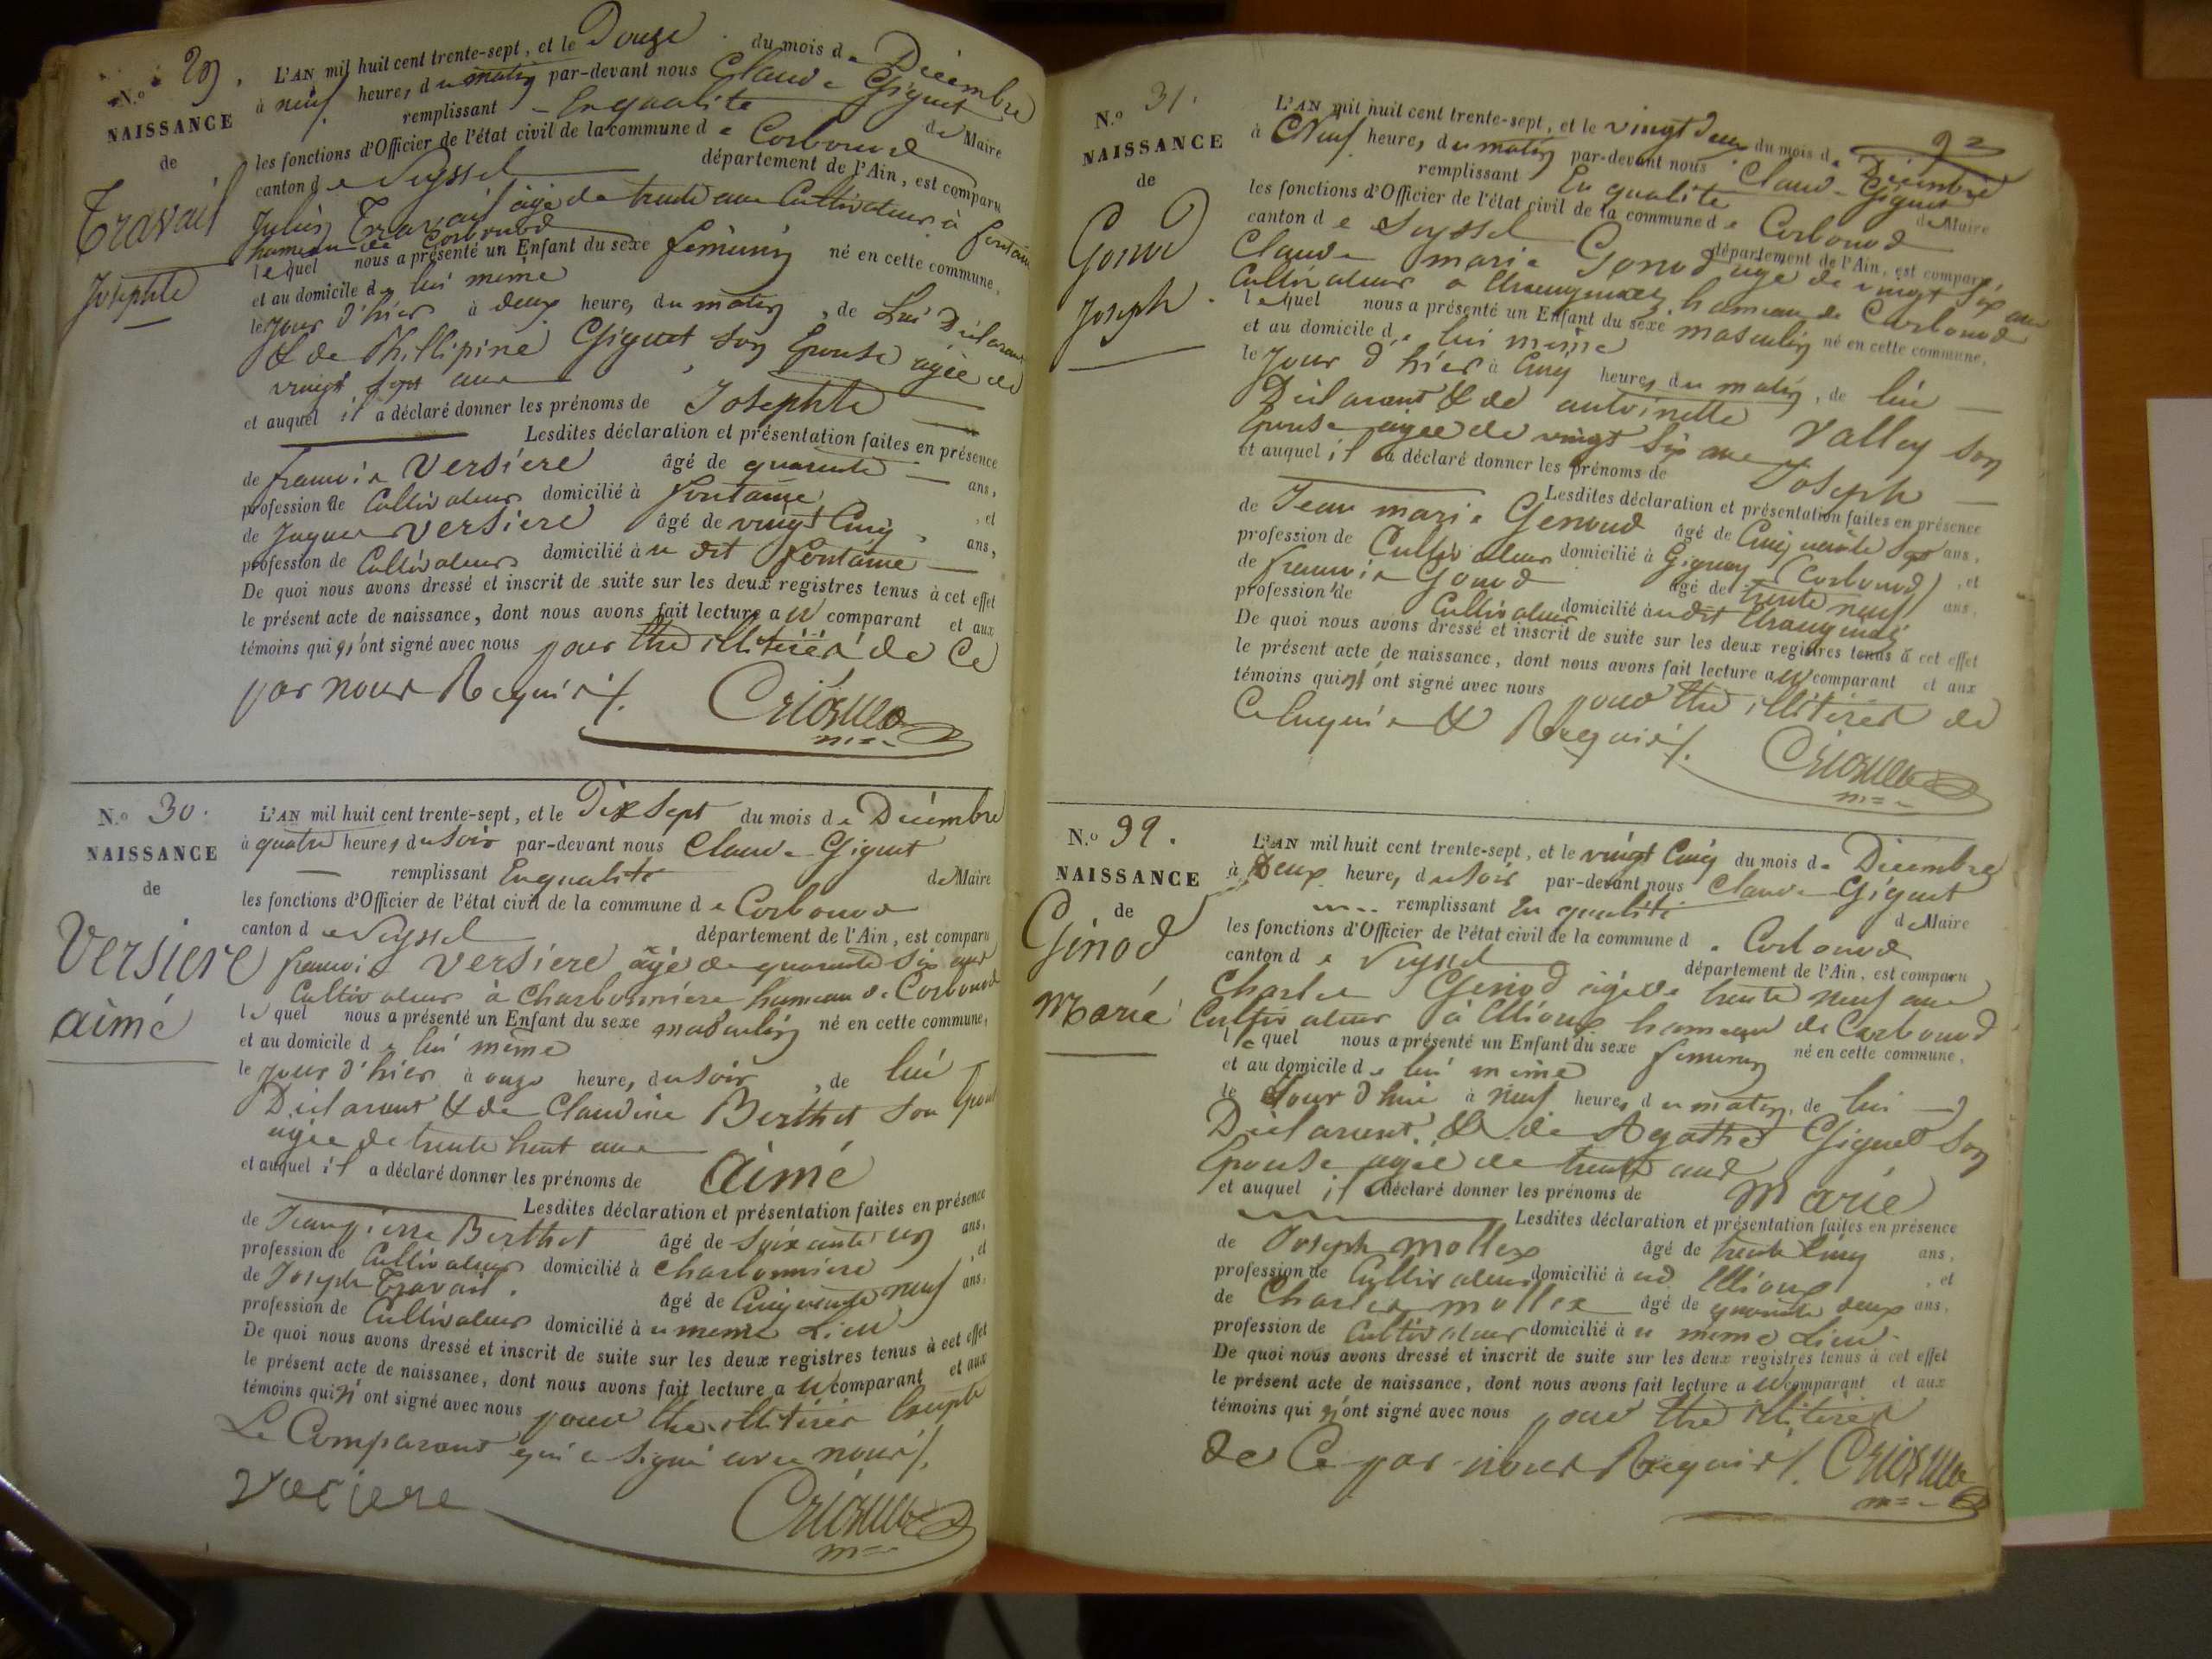 N.º 29.
NAISSANCE
de
Travail
Josephte
L'AN mil huit cent trente-sept, et le Douze du mois de Décembre
à neuf heures du matin par-devant nous Claude Giguet
remplissant En qualité de Maire
les fonctions d'Officier de l'état civil de la commune de Corbonod
canton de Seyssel département de l'Ain, est comparu
Julien Travail âgé de trente ans Cultivateur à fontaine
hameau de Corbonod
lequel nous a présenté un Enfant du sexe féminin né en cette commune,
et au domicile de lui même
le jour d'hier à deux heures du matin, de Lui Déclarant
& de Phillipine Giguet son Épouse âgée de
vingt sept ans
et auquel il a déclaré donner les prénoms de Josephte
Lesdites déclaration et présentation faites en présence
de françois Versiere âgé de quarante ans,
profession de Cultivateur domicilié à fontaine, et
de Jaques Versiere âgé de vingt Cinq ans,
profession de Cultivateur domicilié à u dit fontaine
De quoi nous avons dressé et inscrit de suite sur les deux registres tenus à cet effet
le présent acte de naissance, dont nous avons fait lecture au comparant et aux
témoins qui n'ont signé avec nous pour être illitérés de Ce
par nous Requis /.
Giguet
N.º 30.
NAISSANCE
de
Versiere
aimé
L'AN mil huit cent trente-sept, et le Dix Sept du mois de Décembre
à quatre heures du Soir par-devant nous Claude Giguet
remplissant En qualité de Maire
les fonctions d'Officier de l'état civil de la commune de Corbonod
canton de Seyssel département de l'Ain, est comparu
françois Versiere âgé de quarante Six ans
Cultivateur à Charbonniere hameau de Corbonod
lequel nous a présenté un Enfant du sexe masculin né en cette commune,
et au domicile de lui même
le jour d'hier à onze heures du soir, de lui
Déclarant & de Claudine Berthet son Epouse
agée de trente huit ans
et auquel il a déclaré donner les prénoms de aimé
Lesdites déclaration et présentation faites en présence
de Jeanpierre Berthet âgé de Soixante un ans,
profession de Cultivateur domicilié à Charbonniere et
de Joseph Travail. âgé de Cinquante neuf ans,
profession de Cultivateur domicilié à u même Lieu
De quoi nous avons dressé et inscrit de suite sur les deux registres tenus à cet effet
le présent acte de naissance, dont nous avons fait lecture au comparant et aux
témoins qui n'ont signé avec nous pour être illitérés Excepté
Le Comparant qui a Signé avec nous /.
Verciere Giguet
92
N.º 31.
NAISSANCE
de
Gonod
Joseph.
L'AN mil huit cent trente-sept, et le vingt deux du mois de Décembre
à Neuf heures du matin par-devant nous Claude Giguet
remplissant En qualité de Maire
les fonctions d'Officier de l'état civil de la commune de Corbonod
canton de Seyssel département de l'Ain, est comparu
Claude marie Gonod agé de vingt Six ans
Cultivateur à hameau de Corbonod
lequel nous a présenté un Enfant du sexe masculin né en cette commune,
et au domicile de lui même
le jour d'hier à Cinq heures du matin, de lui
Déclarant & de antoinette Valley son
Epouse agée de vingt Six ans
et auquel il a déclaré donner les prénoms de Joseph
Lesdites déclaration et présentation faites en présence
de Jean marie Genoud âgé de Cinquante Sept ans,
profession de Cultivateur domicilié à Gignay (Corbonod), et
de françois Gonod âgé de trente neuf ans,
profession de Cultivateur domicilié à u dit
De quoi nous avons dressé et inscrit de suite sur les deux registres tenus à cet effet
le présent acte de naissance, dont nous avons fait lecture au comparant et aux
témoins qui n'ont signé avec nous pour être illitérés de
Ce Enquis & Requis /.
Giguet
N.º 32.
NAISSANCE
de
Génod
Marie
L'AN mil huit cent trente-sept, et le vingt Cinq du mois de Décembre
à Deux heures du soir par-devant nous Claude Giguet
remplissant En qualité de Maire
les fonctions d'Officier de l'état civil de la commune de Corbonod
canton de Seyssel département de l'Ain, est comparu
Charles Génod agé de trente neuf ans
Cultivateur à hameau de Corbonod
lequel nous a présenté un Enfant du sexe féminin né en cette commune,
et au domicile de lui même
le Jour d'hui à neuf heures du matin, de lui
Déclarant & de Agathe Giguet son
Epouse agée de trente ans
et auquel il a déclaré donner les prénoms de Marie
Lesdites déclaration et présentation faites en présence
de Joseph mollex âgé de trente Cinq ans,
profession de Cultivateur domicilié à, et
de Charles mollex âgé de quarante deux ans,
profession de Cultivateur domicilié à u même Lieu.
De quoi nous avons dressé et inscrit de suite sur les deux registres tenus à cet effet
le présent acte de naissance, dont nous avons fait lecture au comparant et aux
témoins qui n'ont signé avec nous pour être illitérés
de Ce par nous Requis /. Giguet